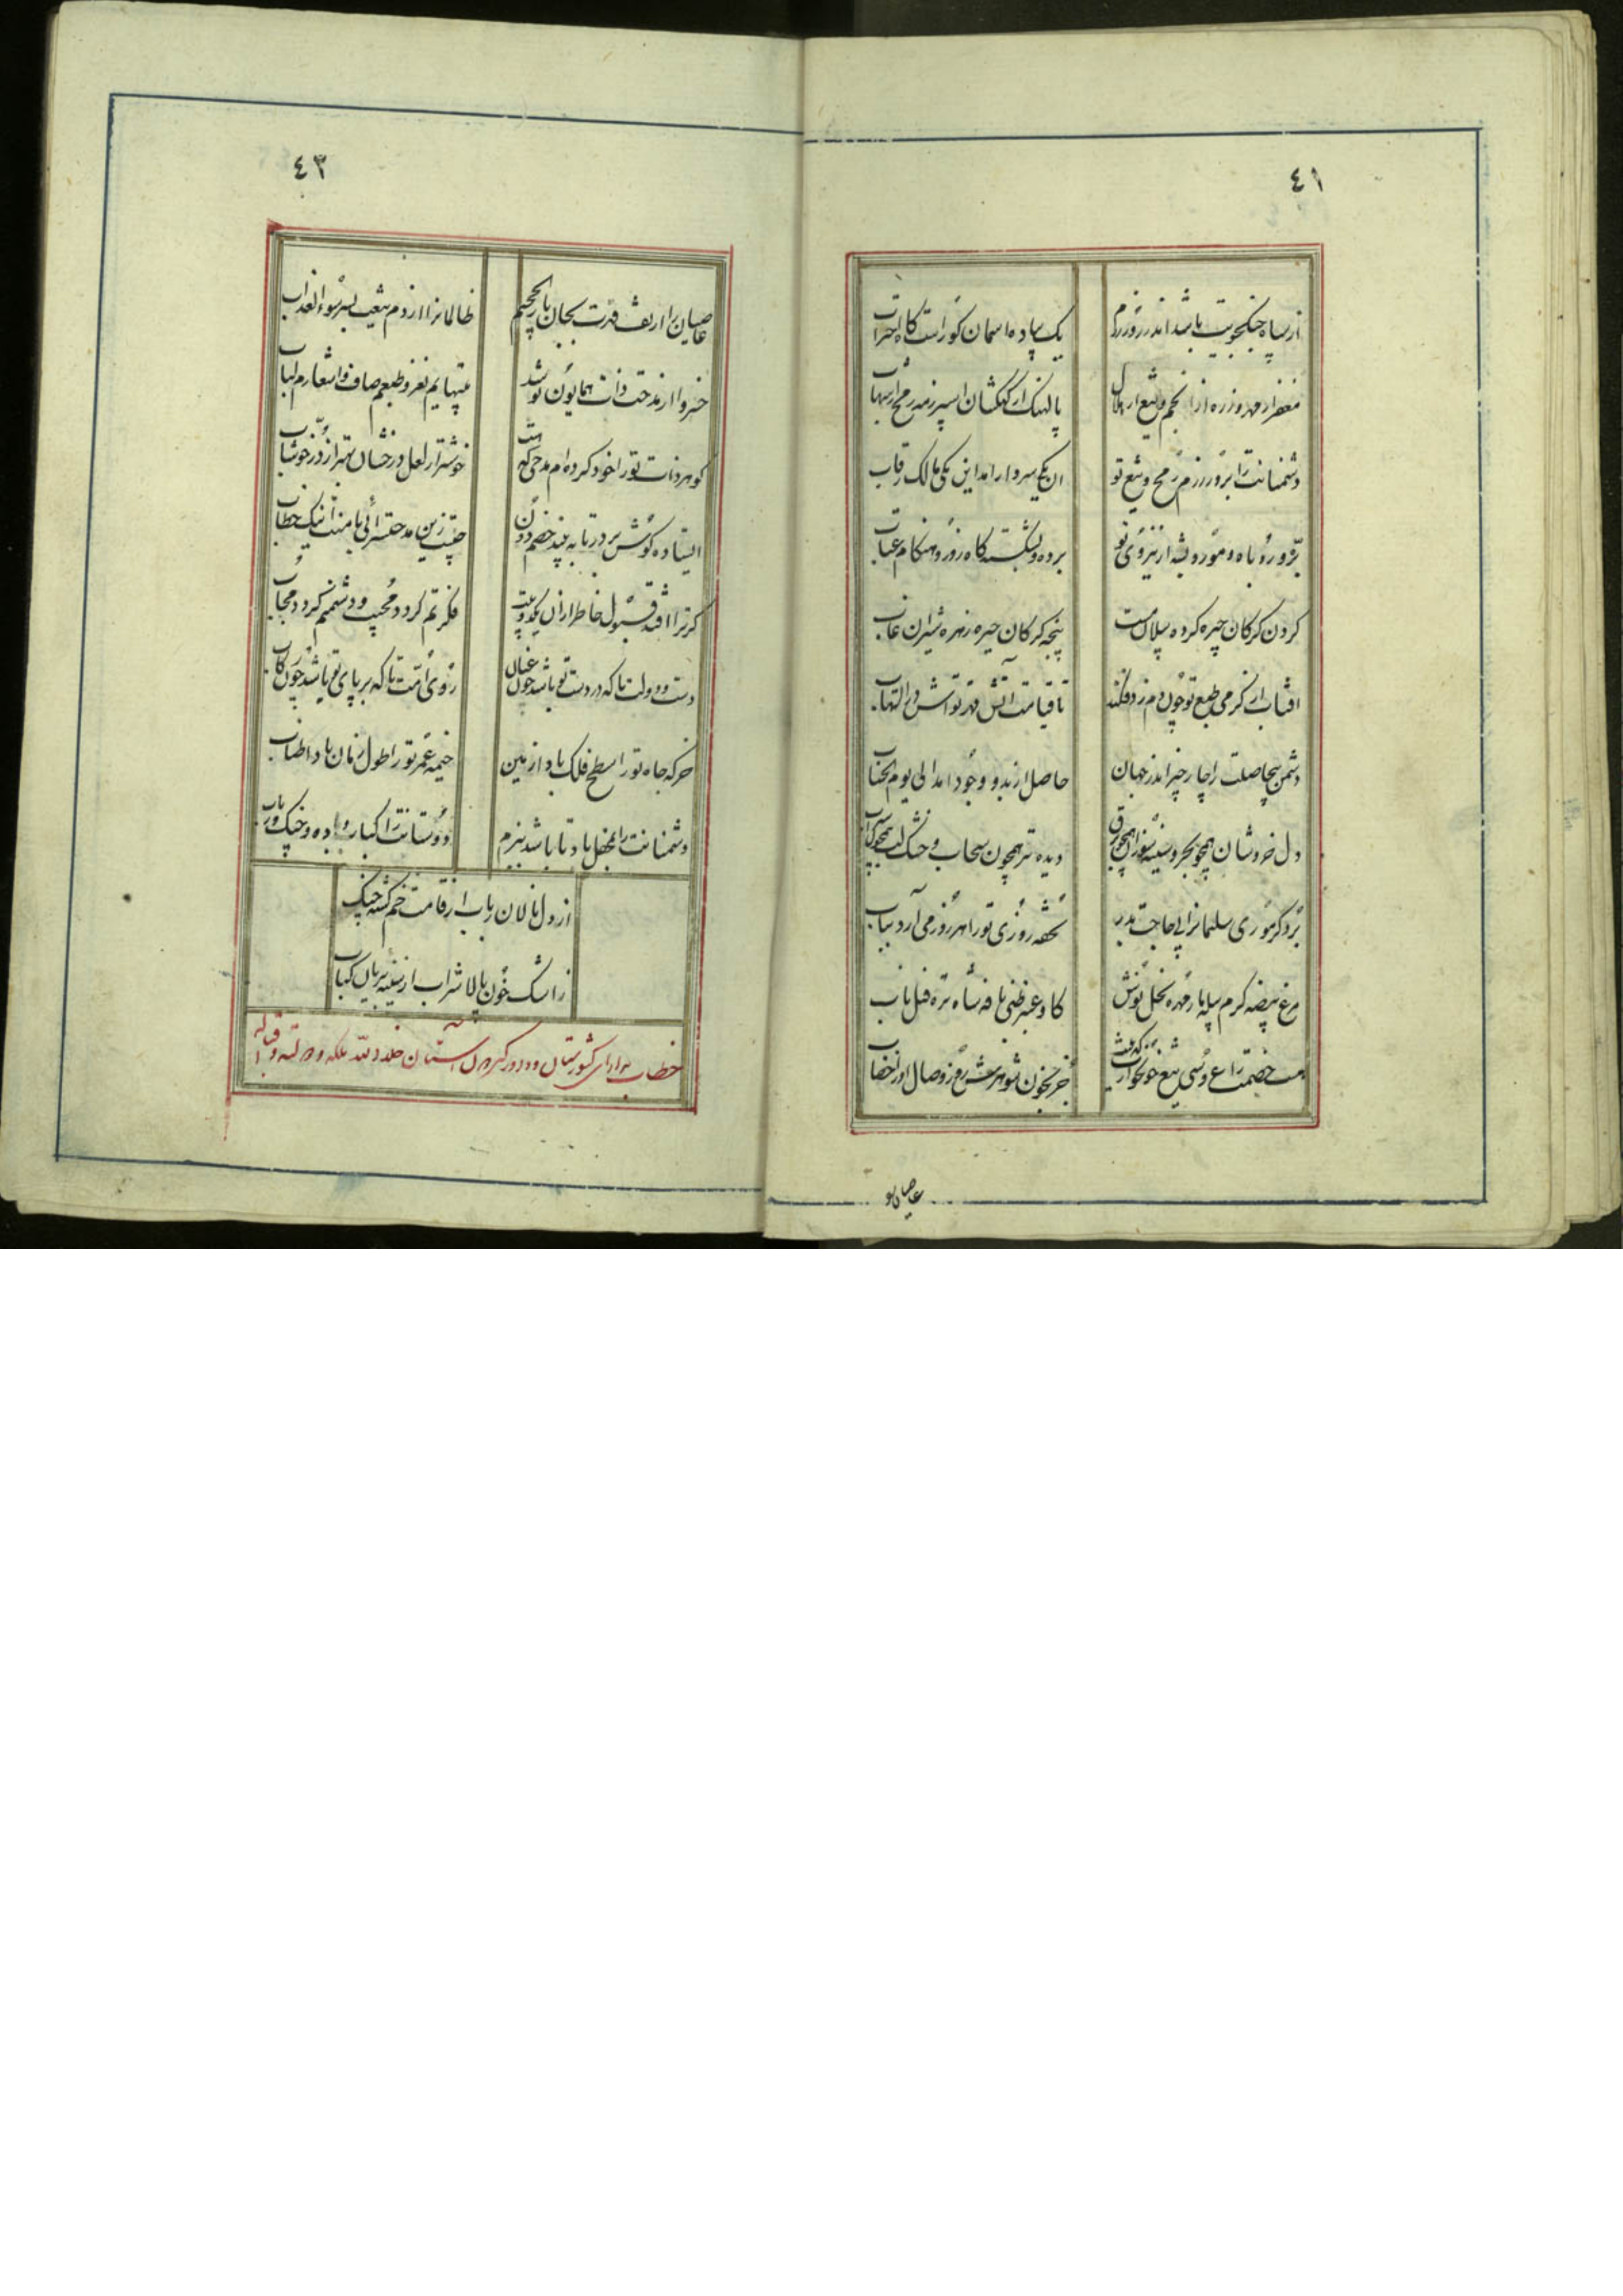 ٤١
از سپاه جنگجویت باشد اندر روز رزم
یک پیاده اسمان کوراست کاه احتراب
مغفر از مهر و زره از انجم و تیغ از هلال
پالهنک از کهکشان اسپر زمه رمح از شهاب
دشمنانت را بروز رزم رمح و تیغ تو
ان یکی سردار امد این یکی مالک رقاب
روباه و مور و پشه از نیروی تو
برده و بشکسته کاه زور و هنکام عتاب
کردن کرکان چیره کرده پیلان مست
پنجه کرکان خیره زهره شیران غاب
افتاب از کرمی طبع تو چون دم زد فکند
تا قیامت اتش قهر تو اتش در التهاب
دشمن بیحاصلت را چار چیز اندر جهان
حاصل از بدو وجود امد الی یوم الحساب
دل خروشان همچو بحر و سینه سوزان همچو برق
دیده تر همچون سحاب و خشک لب همچون سراب
برد کر موری سلیمانرا بحاجت
تحفه روزی تو را هر روز می آرد بباب
مرغ بیضه کرم پیله مار مهره نحل نوش
کاو عنبر ظبی نافه شاه تره فیل ناب
هست خصمت را عروسی تیغ خونخوارت که نیست
جز بخون شوهرش روز وصال او را خضاب
عاصیان تو
٤٣
عاصیان را از تف قهرت بجان نار جحیم
ظالمانرا از دم تیغت بسر سوء العذاب
خسروا از مدحت ذات همایون تو شد
بیتهایم نغز و طبعم صاف و اشعارم لباب
کوهر ذات تو را خود کرده ام مدحی که هست
خوشتر از لعل درخشان بهتر از در خوشاب
ایستاده کوش بر در تا به بیند خصم دون
چیست زین مدحتسرائی با منت اینک خطاب
کر ترا افتد قبول خاطر از ان یکدو بیت
فکرتم کردد مجیب و دشمنم کردد مجاب
دست دولت تا که در دست تو باشد چون عنان
روی امت تا که بر پای تو باشد چون رکاب
خرکه جاه تو را سطح فلک باد از زمین
خیمه عمر تو را طول زمان باد اطناب
دشمنانت را بمحفل باد تا باشد ببزم
دوستانت را کباب و باده و چنک و رباب
از دل نالان رباب از قامت خم کشته چنک
ز اشک خون پالا شراب از سینه بریان کباب
خطاب بدارای کشورستان و داور خلد الله ملکه و